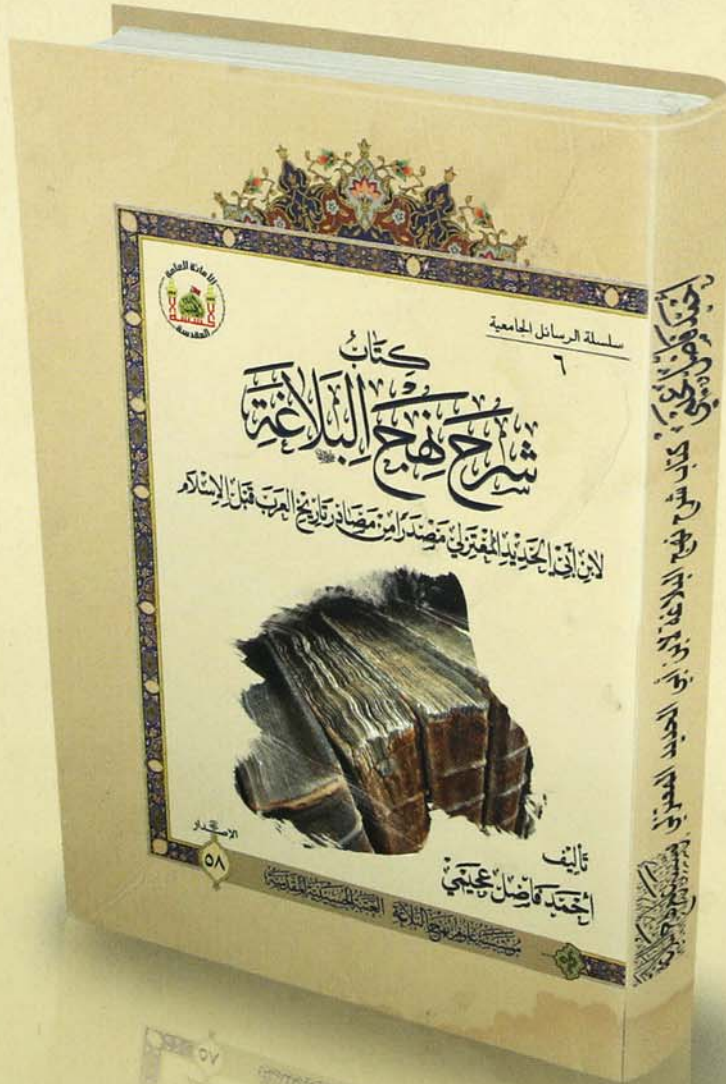 الأمانة العامة
المقدسة
سلسلة الرسائل الجامعية
٦
كتاب
شرح نهج البلاغة
لابن أبي الحديد المعتزلي مصدراً من مصادر تاريخ العرب قبل الإسلام
تأليف
أحمد فاضل عجيمي
الاصدار
٥٨
مؤسسة علوم نهج البلاغة العتبة الحسينية المقدسة
كتاب شرح نهج البلاغة لابن أبي الحديد المعتزلي